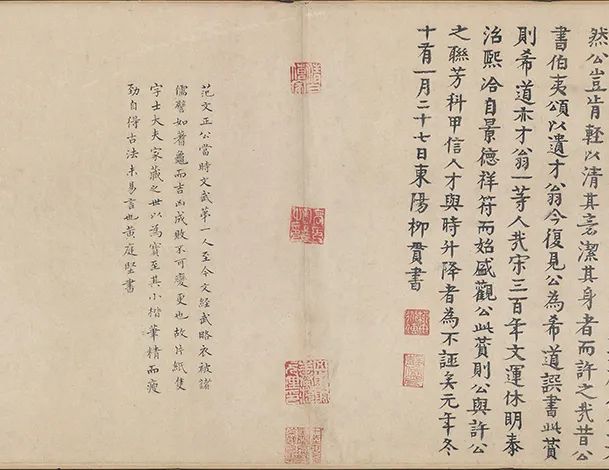 然公豈肯輕以清其意潔其身者而許之哉昔公
書伯夷頌以遺才翁今復見公為希道譔書此贊
則希道亦才翁一等人哉宋三百年文運休明泰
治熙洽自景德祥符而始盛觀公此贊則公與許公
之聯芳科甲信人才與時升降者為不誣矣元年冬
十有一月二十七日東陽柳貫書
范文正公當時文武第一人至今文經武略衣被諸
儒譬如蓍龜而吉凶成敗不可變更也故片紙隻
字士大夫家藏之世以為寶至其小楷筆精而瘦
勁自得古法未易言也黃庭堅書